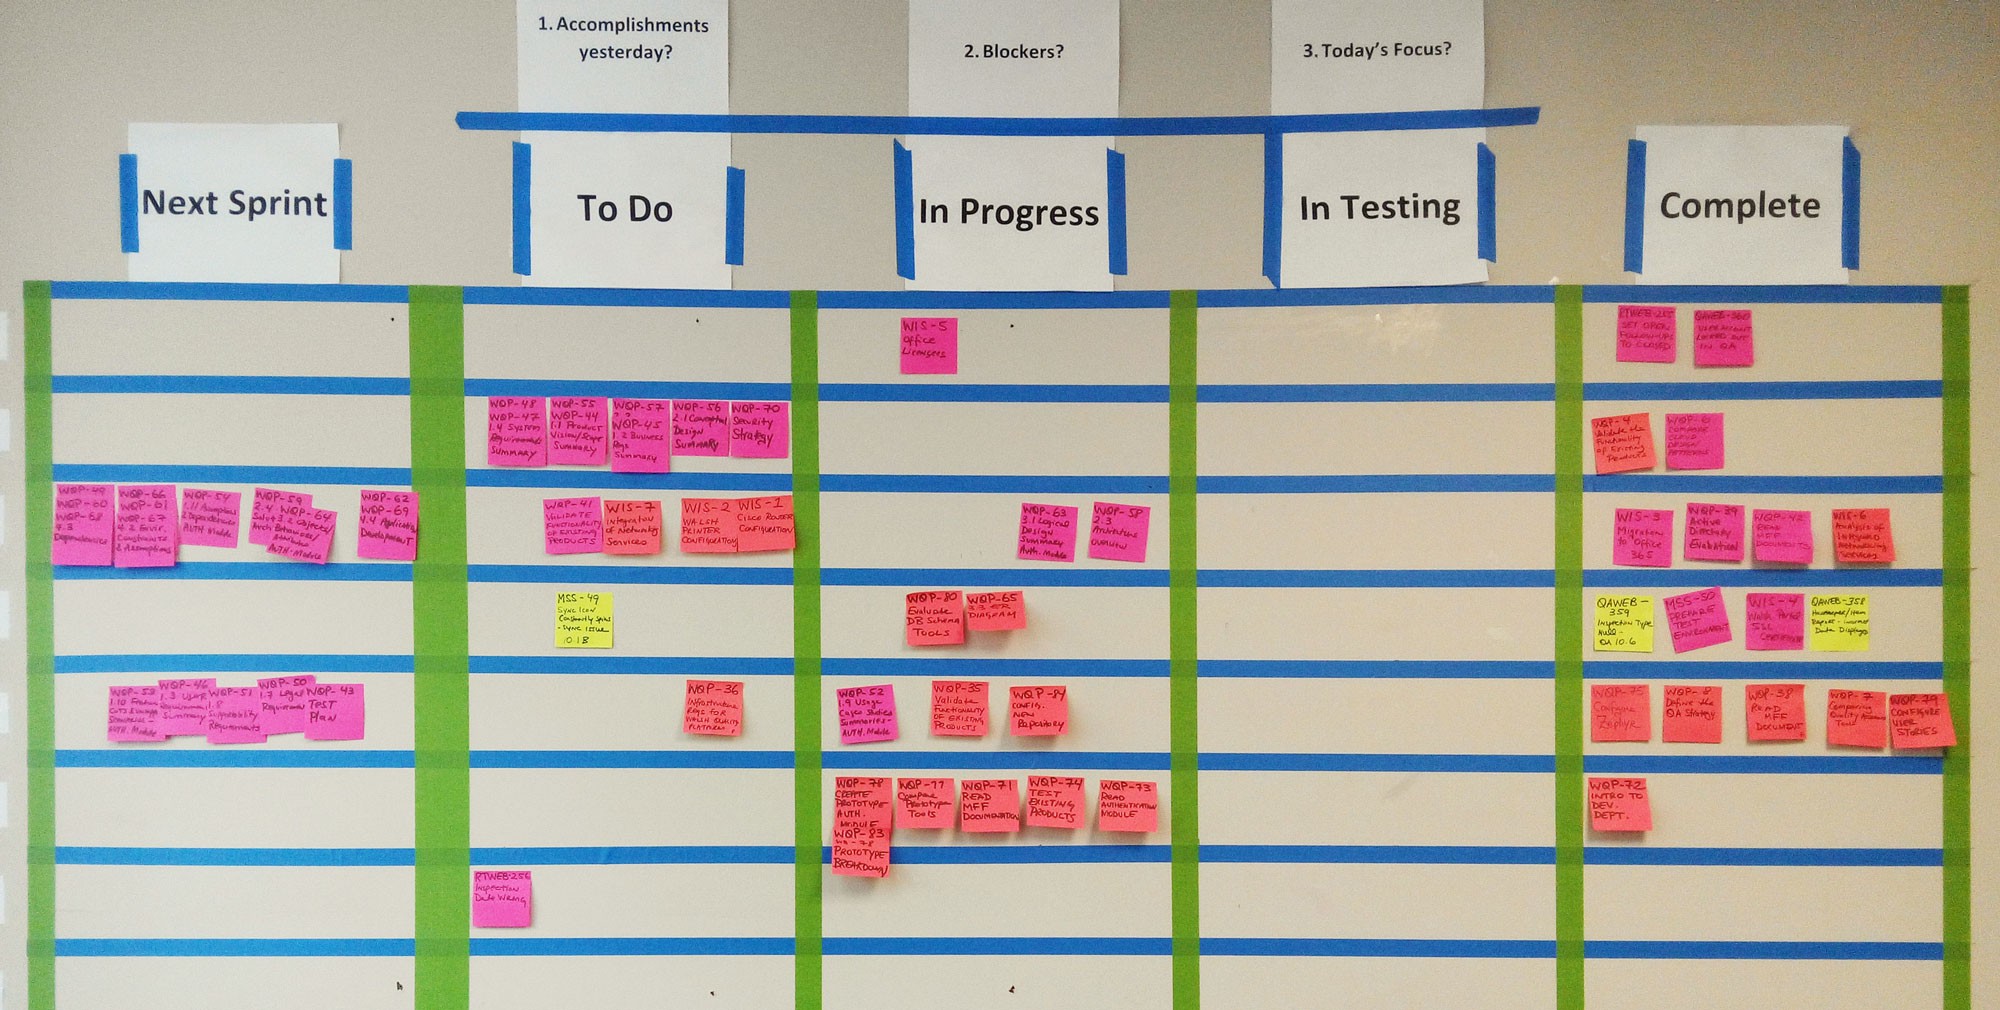 1. Accomplishments
yesterday?
2. Blockers?
3. Today's Focus?
Next Sprint
To Do
In Progress
In Testing
Complete
WIS-5
Office
Licenses
RTWEB-255
SET OPEN
FOLLOW-UPS
TO CLOSED
QAWEB-360
USER ACCOUNT
LOCKED OUT
IN QA
WQP-48
WQP-47
1.4 System
Requirements
SUMMARY
WQP-55
WQP-44
1.1 Product
Vision/Scope
SUMMARY
WQP-57
WQP-45
1.2 Business
Reqs
Summary
WQP-56
2.1 Conceptual
Design
SUMMARY
WQP-70
Security
Strategy
WQP-4
Validate the
Functionality
of Existing
Products
CLOUD
WQP-49
WQP-60
WQP-68
4.3
Dependencies
WQP-66
WQP-61
WQP-67
4.2
Constraints
& Assumptions
WQP-54
1.11 Assumptions
Dependencies
AUTH. Module
WQP-59
2.4
WQP-64
3.2 Objects/
AUTH. Module
WQP-62
WQP-69
4.4 Application
Development
WQP-41
VALIDATE
FUNCTIONALITY
OF EXISTING
PRODUCTS
WIS-7
Integration
of Networking
Services
WIS-2
WALSH
PRINTER
CONFIGURATION
WIS-1
CISCO ROUTER
CONFIGURATION
WQP-63
3.1 Logical
Design
Summary
Auth. Module
WQP-58
2.3
Architecture
OVERVIEW
WIS-3
Migration
to Office
365
WQP-39
Active
Directory
Evaluation
WQP-42
READ
MFF
DOCUMENTS
WIS-6
Analysis of
Networking
Services
MSS-49
Sync Icon
Constantly Spins
- Sync Issue
10.1B
WQP-80
Evaluate
DB Schema
TOOLS
WQP-65
3.3 ER
DIAGRAM
QAWEB-
359
Inspection Type
Null -
QA 10.6
MSS-50
PREPARE
TEST
ENVIRONMENT
WIS-4
SSL
QAWEB-358
Data Display
WQP-53
AUTH. Module
WQP-46
1.3 User
Requirements
Summary
WQP-51
1.8
Requirements
WQP-50
1.7 Legal
Requirements
WQP-43
TEST
Plan
WQP-36
Infrastructure
Reqs for
WALSH QUALITY
PLATFORM
WQP-52
1.9 Usage
Cases Studies
Summaries-
AUTH. Module
WQP-35
Validate
Functionality
OF EXISTING
PRODUCTS
WQP-84
CONFIG.
NEW
Repository
WQP-75
Configure
Zephyr
WQP-8
Define the
QA Strategy
WQP-38
READ
MFF
DOCUMENT
WQP-7
Comparing
Quality
Tools
WQP-79
CONFIGURE
USER
STORIES
WQP-78
CREATE
PROTOTYPE
AUTH.
MODULE
WQP-83
PROTOTYPE
BREAKDOWN
WQP-77
Compare
Prototype
Tools
WQP-71
READ
MFF
DOCUMENTATION
WQP-74
TEST
EXISTING
PRODUCTS
WQP-73
READ
AUTHENTICATION
MODULE
WQP-72
INTRO TO
DEV.
DEPT.
RTWEB-256
Inspection
Date Wrong